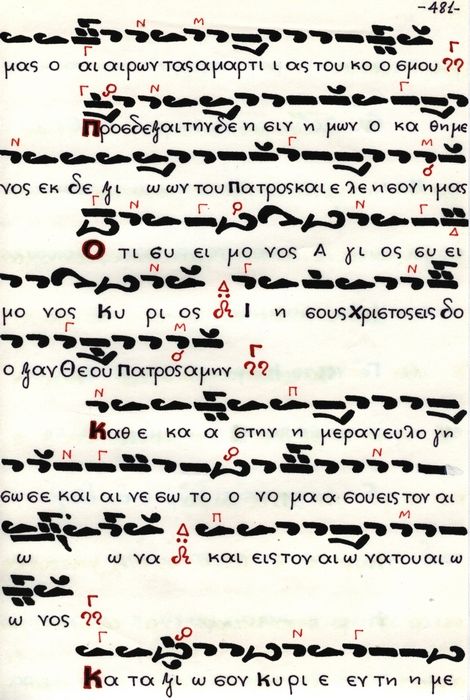 -481-
μας ο αι αιρωντασαμαρτι ι αςτου κο ο σμου
Προσδεξαιτηνδε η σιν η μων ο κα θημε
νος εκ δε ξι ω ωντου Πατροσκαι ε λε ησον ημας
Ο τι συ ει μο νος Α γι ος συ ει
μο νος Κυ ρι ος Ι η σουςΧριστοσεις δο
ο ξανΘεου Πατροσαμην
Καθε κα α στην η μερανευλο γη
σωσε και αι νε σω το ο νο μα α σουειστον αι
ω ω να και εις τον αι ω νατου αι ω
ω νος
Κα τα ξι ω σον Κυ ρι ε εν τη η με